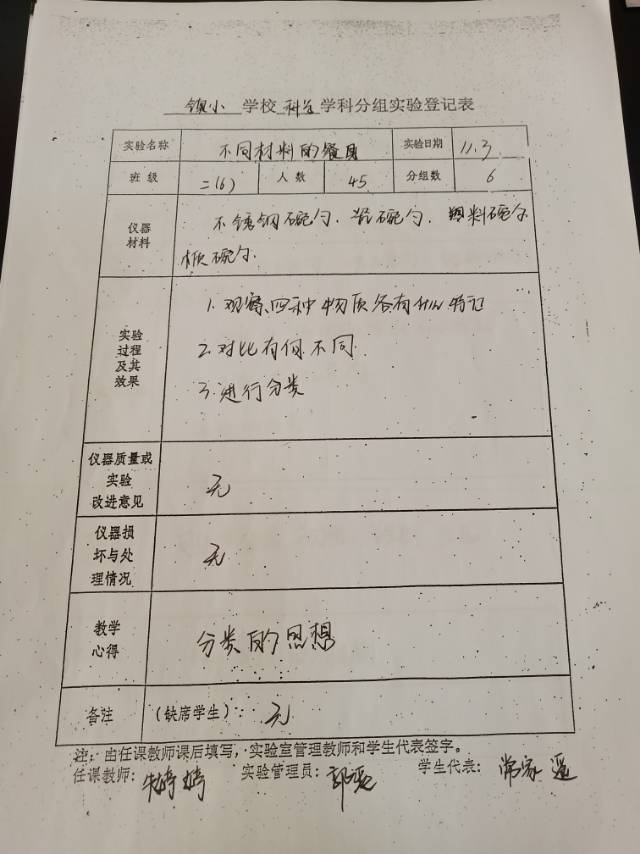 镇小 学校 科学 学科分组实验登记表
实验名称 不同材料的餐具 实验日期 11.3
班 级 二(6) 人 数 45 分组数 6
仪器材料 不锈钢碗勺、瓷碗勺、塑料碗勺
木质碗勺.
实验过程及其效果
1.观察四种物质各有什么特征
2.对比有何不同.
3.进行分类
仪器质量或实验改进意见 无
仪器损坏与处理情况 无
教学心得 分类的思想
备注 (缺席学生): 无
注: 由任课教师课后填写, 实验室管理教师和学生代表签字。
任课教师: 朱婷婷 实验管理员: 学生代表: 常家